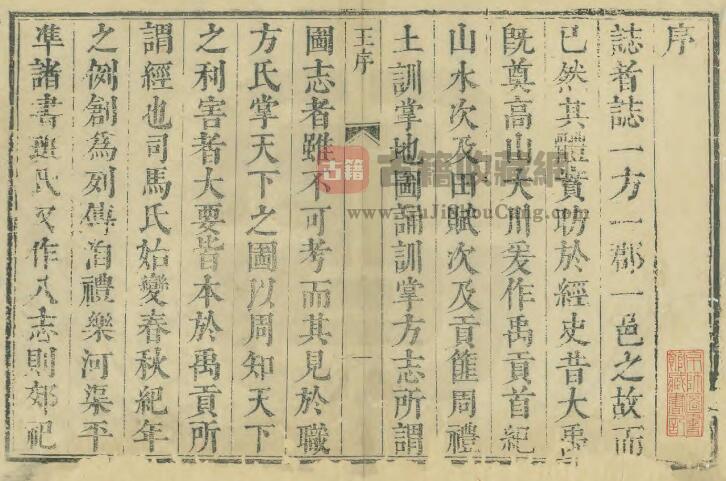 序
誌者誌一方一郡一邑之故而
已然其體實昉於經史昔大禹
既奠高山大川爰作禹貢首紀
山水次及田賦次及貢篚周禮
土訓掌地圖誦訓掌方志所謂
王序
一
圖志者雖不可考而其見於職
方氏掌天下之圖以周知天下
之利害者大要皆本於禹貢所
謂經也司馬氏始變春秋紀年
之例創為列傳洎禮樂河渠平
準諸書班氏又作八志則郊祀
古籍
古籍收藏網
www.GuJiShouCang.com
京師圖書
館藏書記